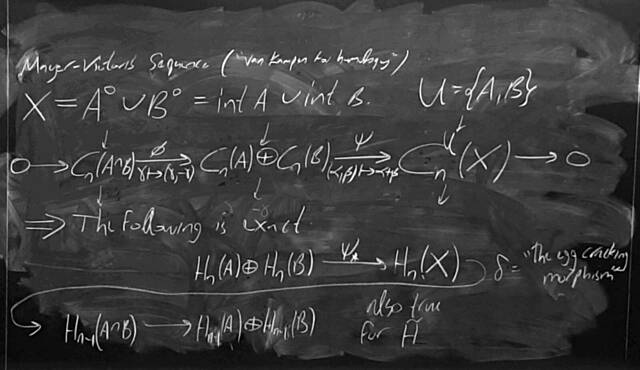 Mayer-Vietoris Sequence ("van Kampen for homology")
X = A° ∪ B° = int A ∪ int B. U = {A, B}
0 → Cₙ(A∩B) →^ϕ_{γ↦(γ,-γ)} Cₙ(A) ⊕ Cₙ(B) →^ψ_{(α,β)↦α+β} Cₙ^U(X) → 0
⇒ The following is exact.
Hₙ(A) ⊕ Hₙ(B) →^{ψ*} Hₙ(X) δ = "the egg cracking morphism"
→ Hₙ₋₁(A∩B) → Hₙ₋₁(A) ⊕ Hₙ₋₁(B) also true
for H̃